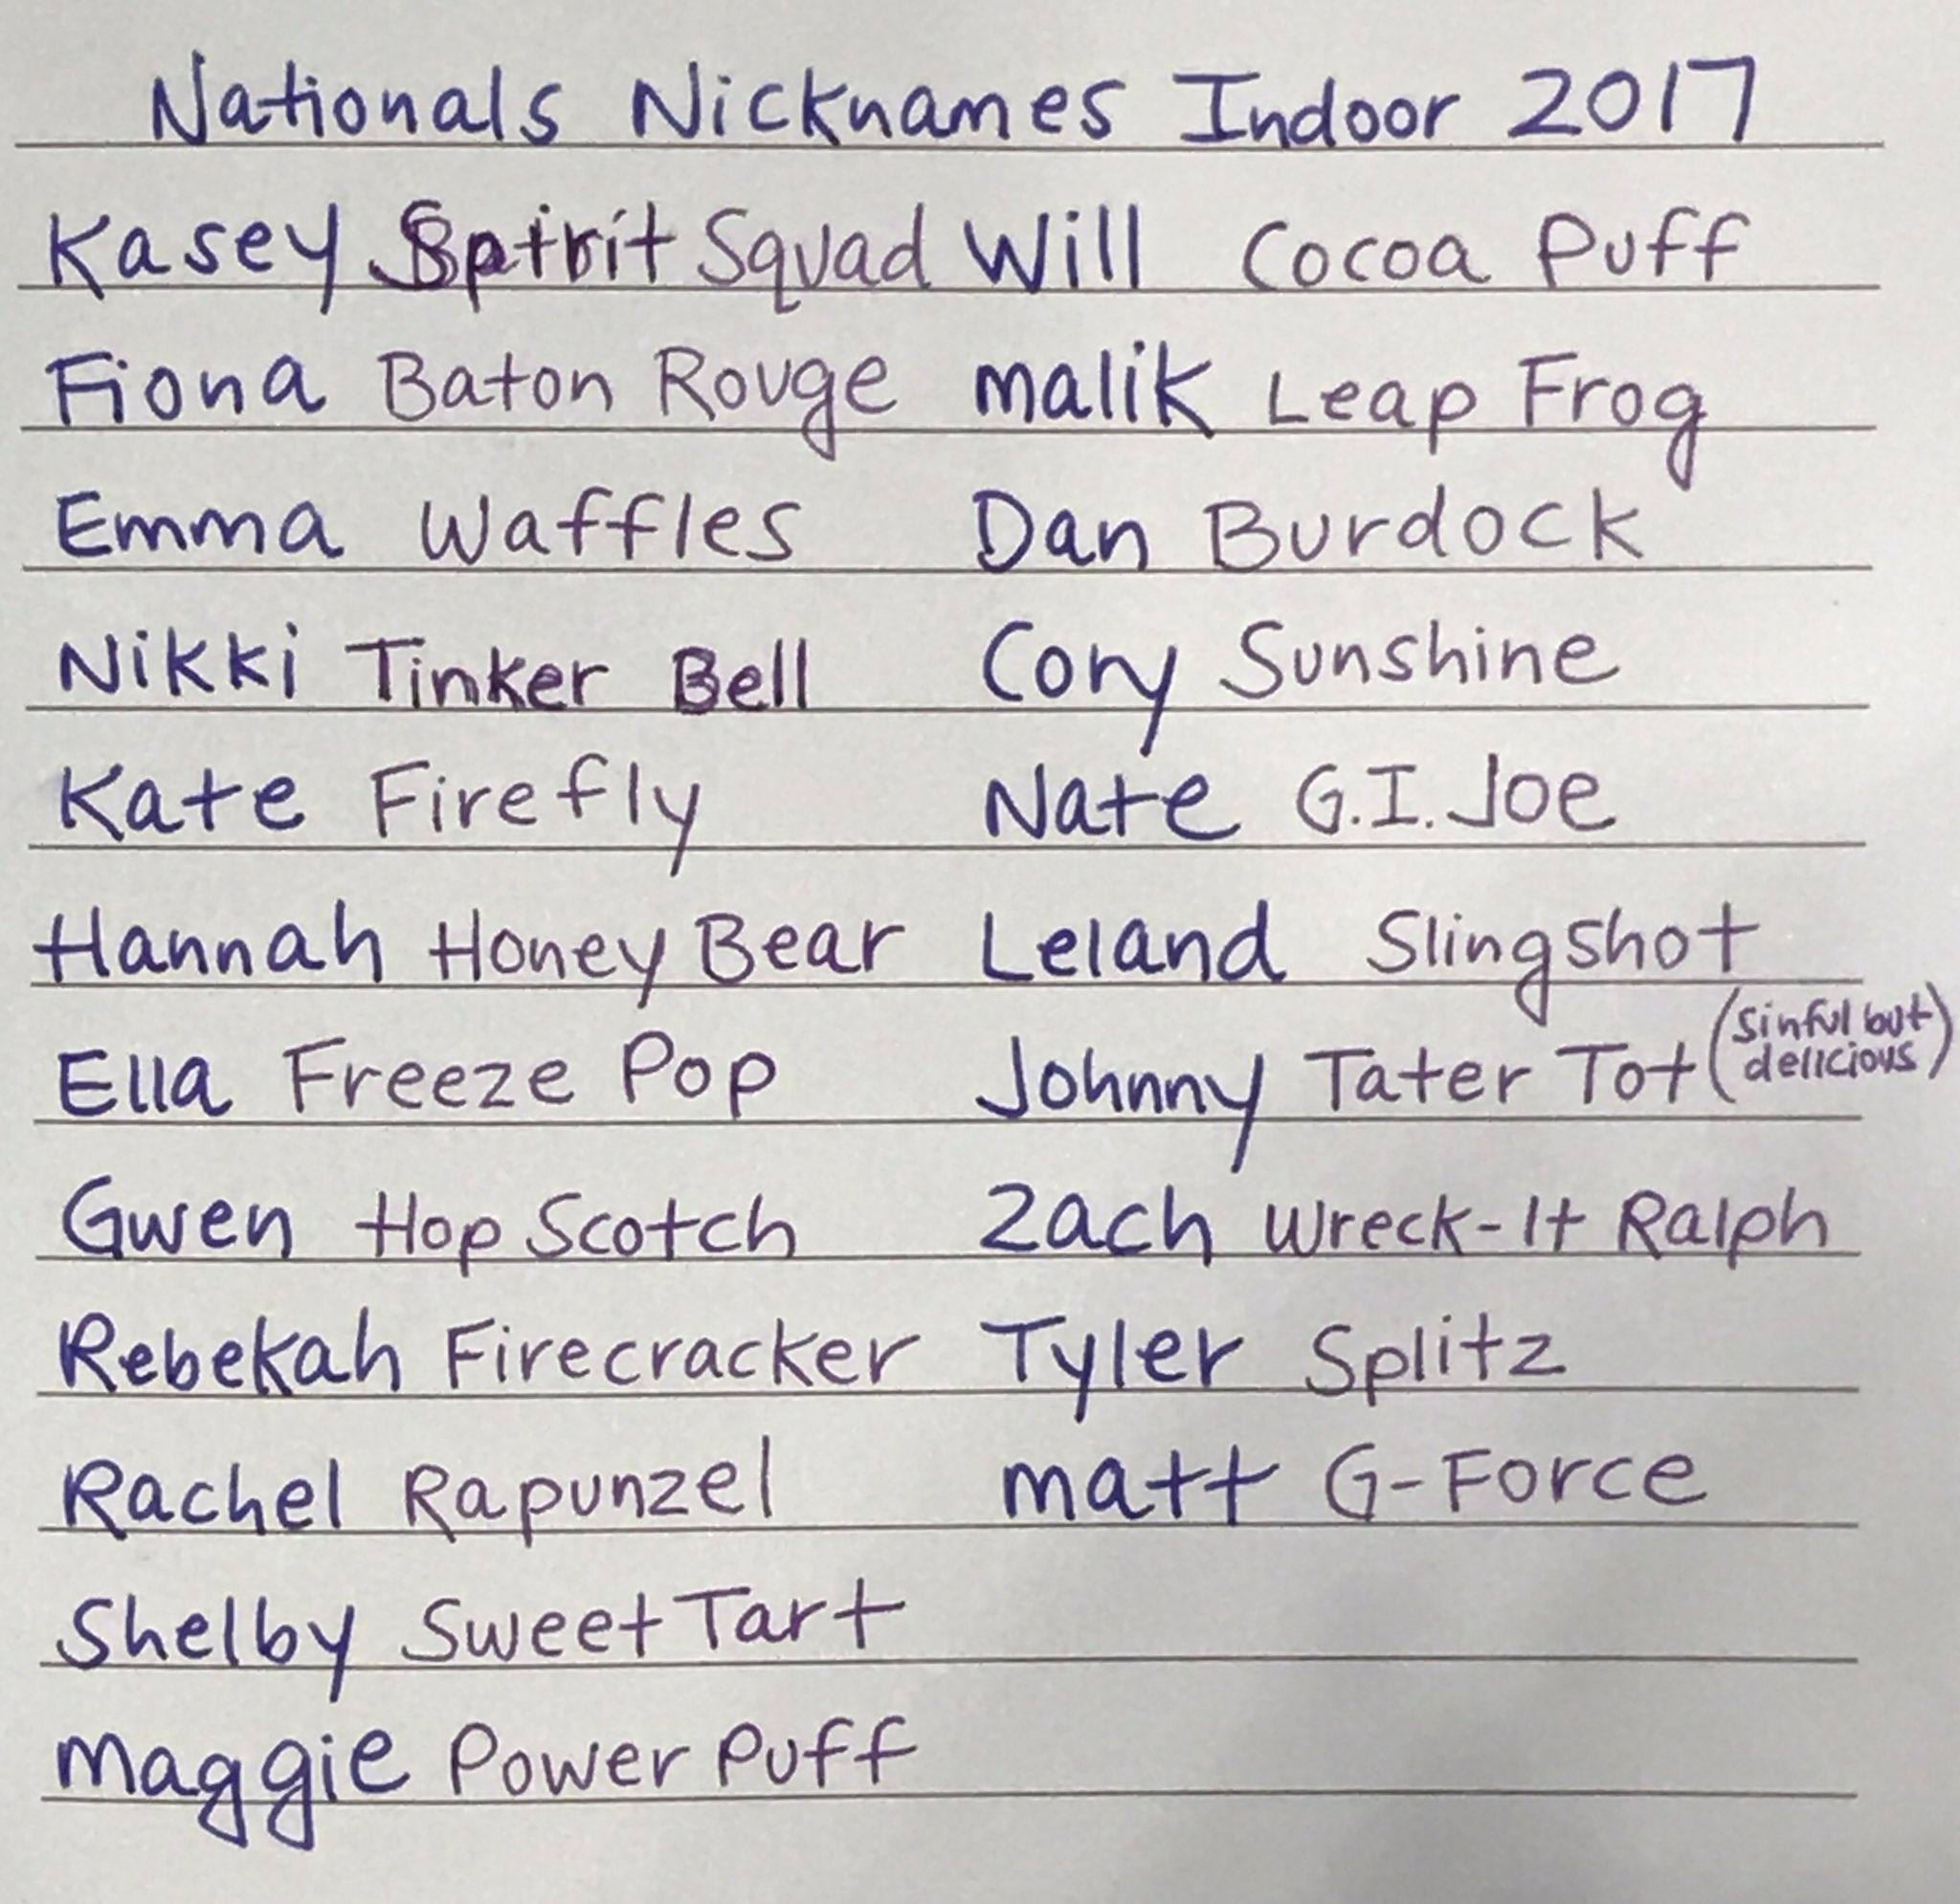 Nationals Nicknames Indoor 2017
Kasey Spirit Squad Will Cocoa Puff
Fiona Baton Rouge Malik Leap Frog
Emma Waffles Dan Burdock
Nikki Tinker Bell Cory Sunshine
Kate Firefly Nate G.I. Joe
Hannah Honey Bear Leland Slingshot
Ella Freeze Pop Johnny Tater Tot (sinful but delicious)
Gwen Hop Scotch Zach Wreck-It Ralph
Rebekah Firecracker Tyler Splitz
Rachel Rapunzel Matt G-Force
Shelby Sweet Tart
Maggie Power Puff